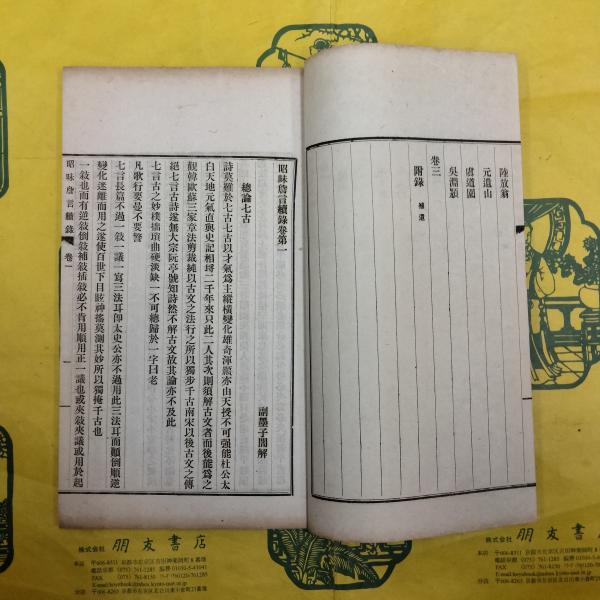 陸放翁
元遺山
虞道園
吳淵穎
卷三
附錄 補遺
昭昧詹言續錄卷第一
副墨子閣解
總論七古
詩莫難於七古七古以才氣爲主縱橫變化雄奇渾顥亦由天授不可强能杜公太
白天地元氣直與史記相埒二千年來只此二人其次則須解古文者而後能爲之
觀韓歐蘇三家章法剪裁純以古文之法行之所以獨步千古南宋以後古文之傳
絕七言古詩遂無大宗阮亭號知詩然不解古文故其論亦不及此
七言古之妙樸拙瑣曲硬淡缺一不可總歸於一字曰老
凡歌行要曼不要警
七言長篇不過一敍一議一寫三法耳卽太史公亦不過用此三法耳而顚倒順逆
變化迷離而用之遂使百世下目眩神搖莫測其妙所以獨掩千古也
一敍也而有逆敍倒敍補敍插敍必不肯用順用正一議也或夾敍夾議或用於起
昭昧詹言續錄 卷一 一
株式会社 朋友書店